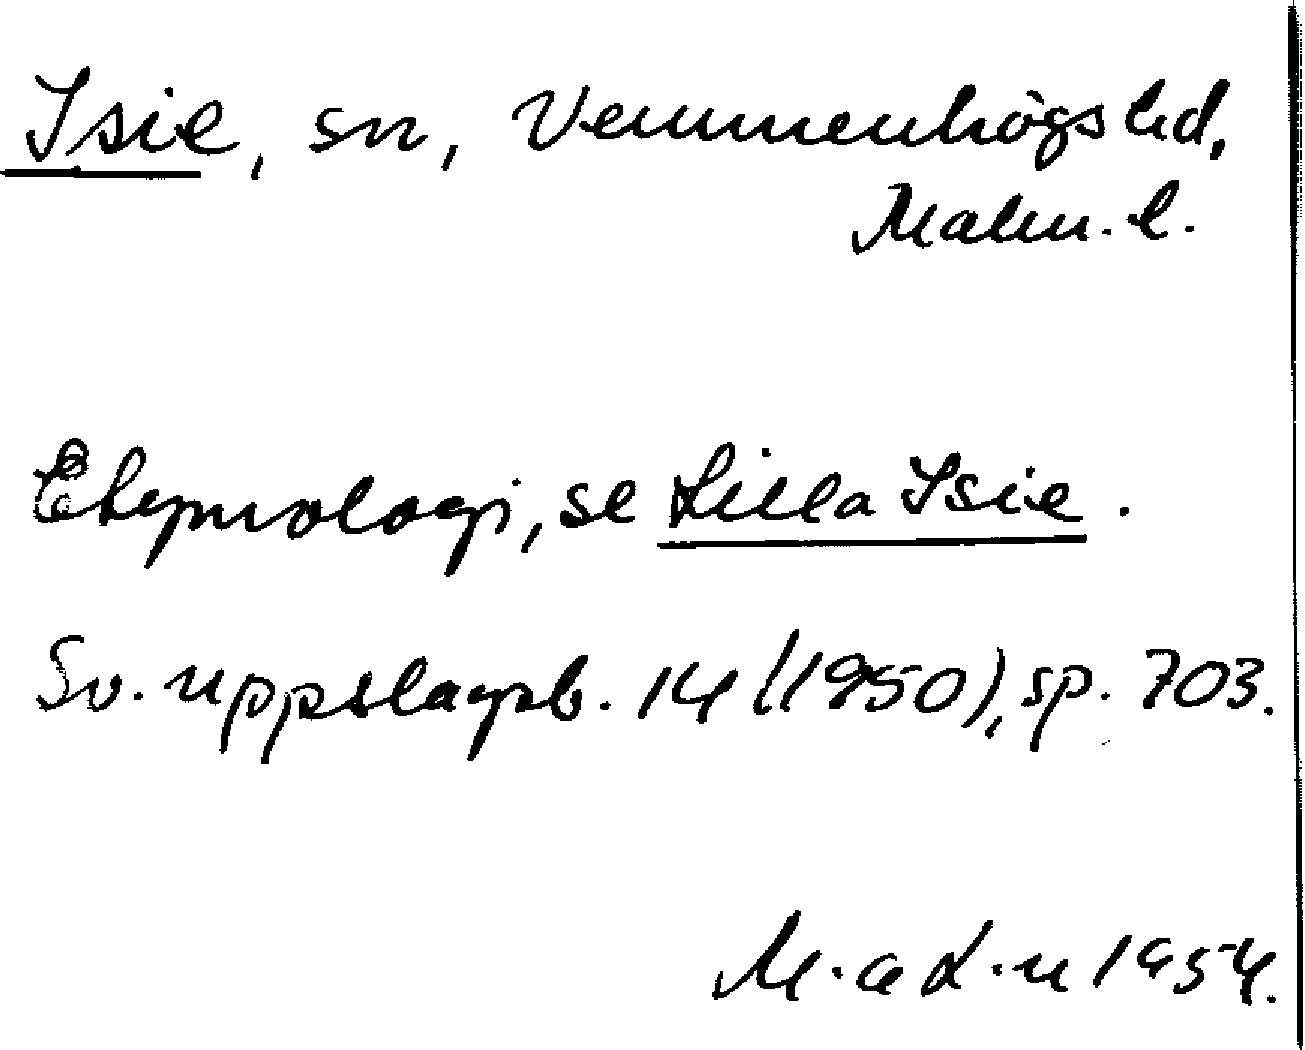 Isie, sn, Vemmenhögs hd,
Malm. l.
Etymologi, se Lilla Isie.
Sv. uppslagsb. 14 (1950), sp. 703.
1954.